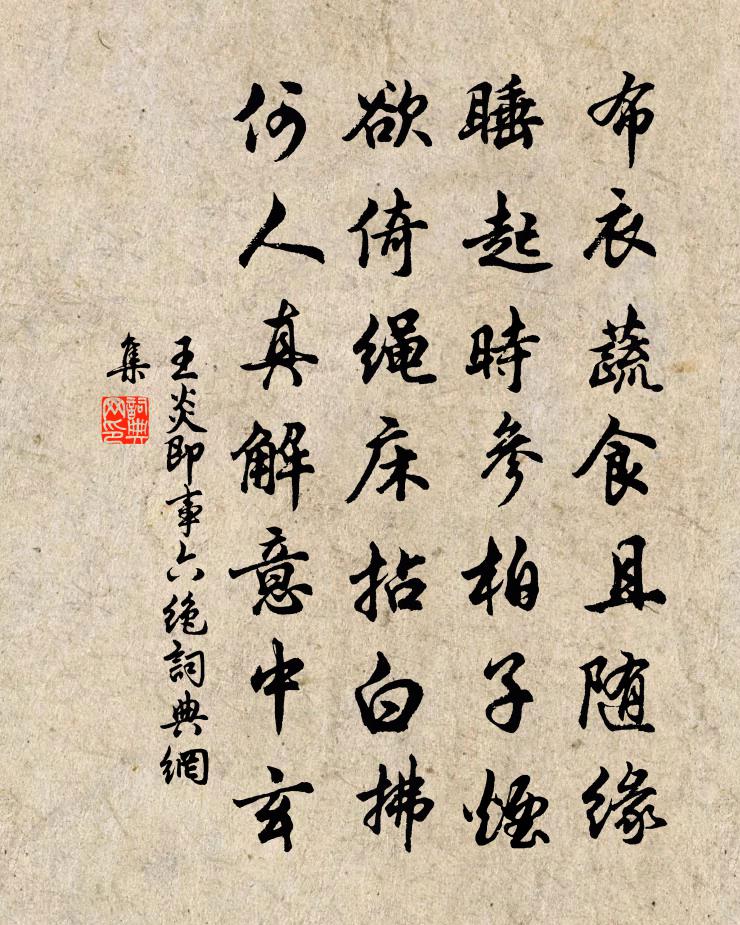 布衣蔬食且随緣
睡起時參柏子煙
欲倚绳床拈白拂
何人真解意中玄
王炎即事六绝詞典網
集
詞典
网印